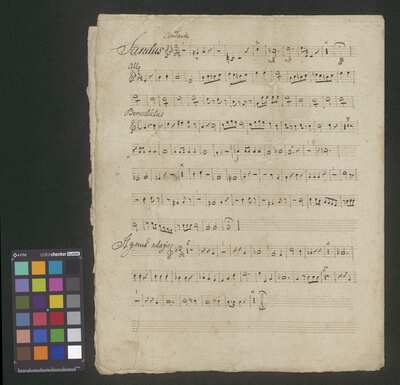 Andante
Sanctus
Allo
Benedictus
Agnus adagio
colorchecker